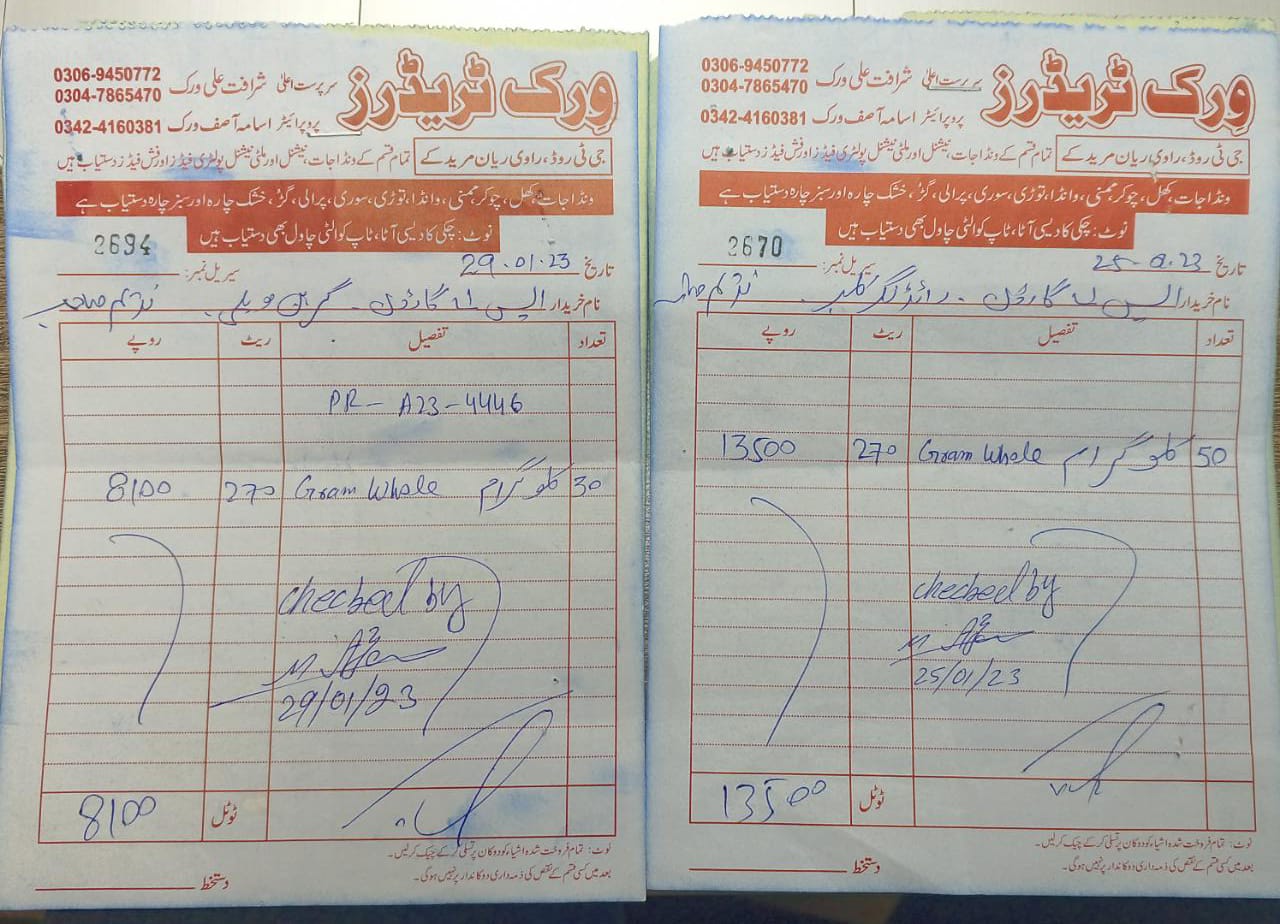 ورک ٹریڈرز
0306-9450772
0304-7865470
سرپرست اعلیٰ شرافت علی ورک
0342-4160381
پروپرائیٹر اسامہ آصف ورک
جی ٹی روڈ، راوی ریان مریدکے
تمام قسم کے ونڈا جات، نیشنل اور ملٹی نیشنل پولٹری فیڈز اور فش فیڈز دستیاب ہیں
ونڈا جات، کھل، چوکر، مکئی، وانڈا، توڑی، سوری، پرالی، گڑ، خشک چارہ اور سبز چارہ دستیاب ہے
نوٹ: چکی کا دیسی آٹا، ٹاپ کوالٹی چاول بھی دستیاب ہیں
تاریخ 29.01.23 سیریل نمبر: 2694
نام خریدار ایس اے گارڈن - گرین ویلی - ندیم صاحب
تعداد تفصیل ریٹ روپے
PR- A23-4446
30 کلو گرام Gram Whole 270 8100
checked by
29/01/23
ٹوٹل 8100
نوٹ: تمام فروخت شدہ اشیاء کو دوکان پر تسلی کر کے چیک کر لیں۔
بعد میں کسی قسم کے نقص کی ذمہ داری دوکاندار پر نہیں ہوگی۔
دستخط
ورک ٹریڈرز
0306-9450772
0304-7865470
سرپرست اعلیٰ شرافت علی ورک
0342-4160381
پروپرائیٹر اسامہ آصف ورک
جی ٹی روڈ، راوی ریان مریدکے
تمام قسم کے ونڈا جات، نیشنل اور ملٹی نیشنل پولٹری فیڈز اور فش فیڈز دستیاب ہیں
ونڈا جات، کھل، چوکر، مکئی، وانڈا، توڑی، سوری، پرالی، گڑ، خشک چارہ اور سبز چارہ دستیاب ہے
نوٹ: چکی کا دیسی آٹا، ٹاپ کوالٹی چاول بھی دستیاب ہیں
تاریخ 25-01-23 سیریل نمبر: 2670
نام خریدار ایس اے گارڈن - رائڈنگ کلب - ندیم صاحب
تعداد تفصیل ریٹ روپے
50 کلو گرام Gram Whole 270 13500
checked by
25/01/23
ٹوٹل 13500
نوٹ: تمام فروخت شدہ اشیاء کو دوکان پر تسلی کر کے چیک کر لیں۔
بعد میں کسی قسم کے نقص کی ذمہ داری دوکاندار پر نہیں ہوگی۔
دستخط